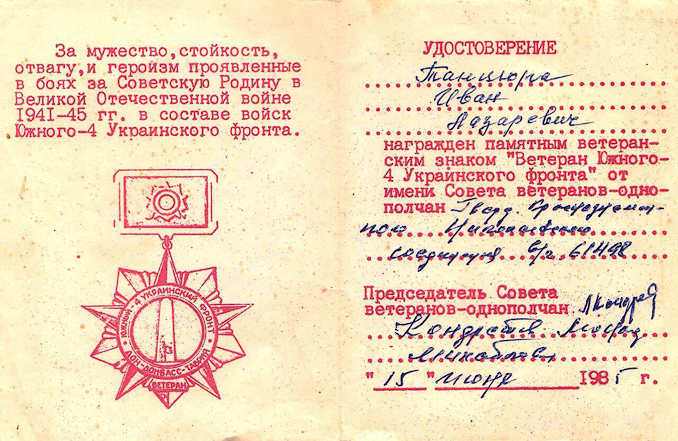 За мужество, стойкость,
отвагу, и героизм проявленные
в боях за Советскую Родину в
Великой Отечественной войне
1941-45 гг. в составе войск
Южного-4 Украинского фронта.
ЮЖНОЙ-4 УКРАИНСКИЙ ФРОНТ
ДОН-ДОНБАСС-ТАВРИЯ
ВЕТЕРАН
УДОСТОВЕРЕНИЕ
Танцюра
Иван
Лазаревич
награжден памятным ветеран-
ским знаком "Ветеран Южного-
4 Украинского фронта" от
имени Совета ветеранов-одно-
полчан Гвард.
в/ч 61498
Председатель Совета
ветеранов-однополчан
"15" июня 1985 г.